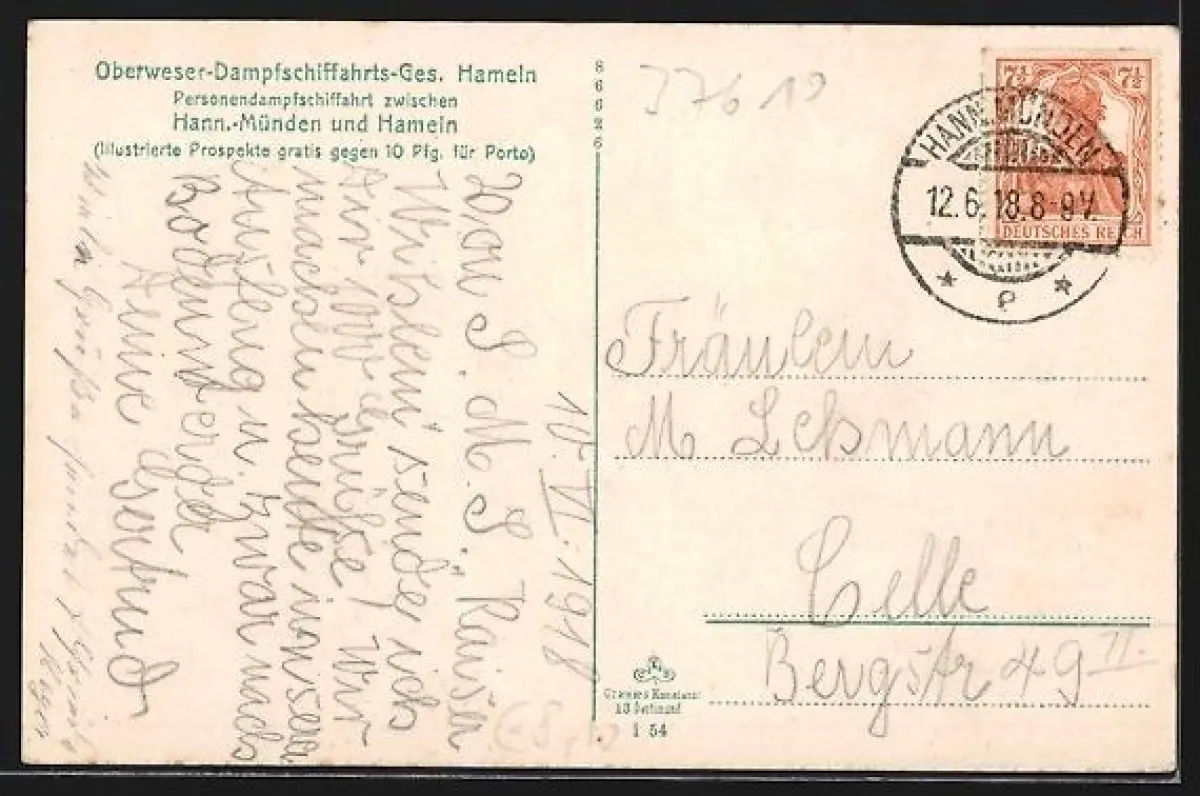 Oberweser-Dampfschiffahrts-Ges. Hameln
Personendampfschiffahrt zwischen
Hann.-Münden und Hameln
(Illustrierte Prospekte gratis gegen 10 Pfg. für Porto)
10. VI. 1918
Von S. M. S. "Kaiser
Wilhelm" sende ich
Dir 1000 Grüße! Wir
machen heute unsern
Ausflug u. zwar nach
Bodenwerder
Deine Gertrud
Viele Grüße sendet
86626
37619
7½ 7½
DEUTSCHES REICH
HANN. MÜNDEN
12.6.18.8-9V.
* e *
Fräulein
M Lehmann
Celle
Bergstr 49 II.
Cramers Kunstanst.
Dortmund
1 54